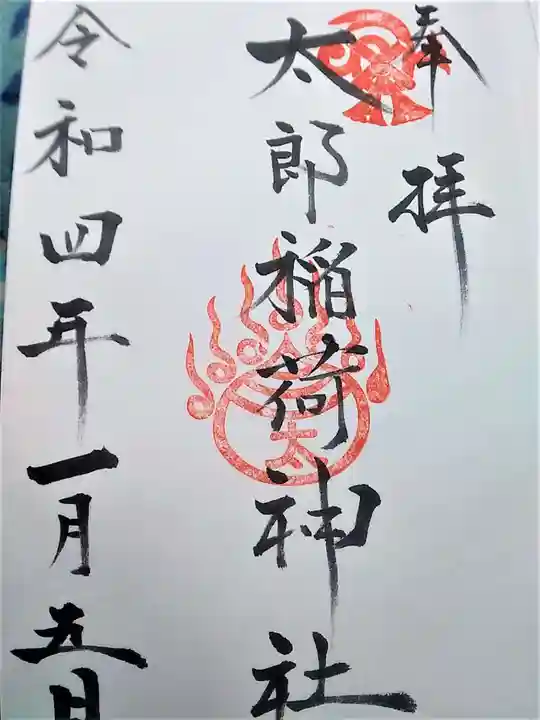 奉拝
太郎稲荷神社
令和四年一月五日
太